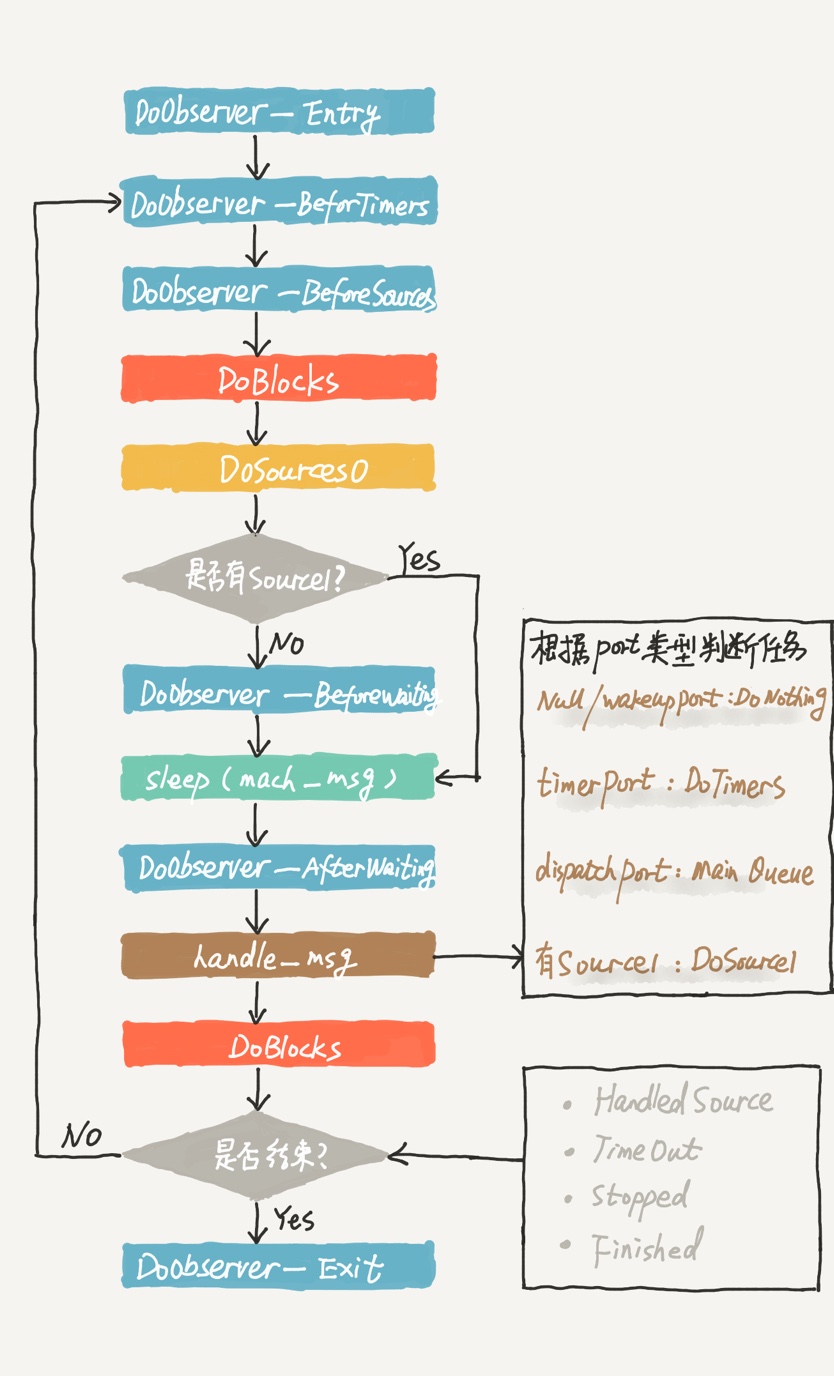 DoObserver — Entry
DoObserver — BeforTimers
DoObserver — BeforeSources
DoBlocks
DoSources0
是否有Source1?
Yes
No
DoObserver — Beforewaiting
sleep (mach_msg)
DoObserver — AfterWaiting
handle_msg
DoBlocks
是否结束?
No
Yes
DoObserver — Exit
根据port类型判断任务
Null/wakeupport:DoNothing
timerPort : DoTimers
dispatchport: Main Queue
有Source1 : DoSource1
• Handled Source
• TimeOut
• Stopped
• Finished